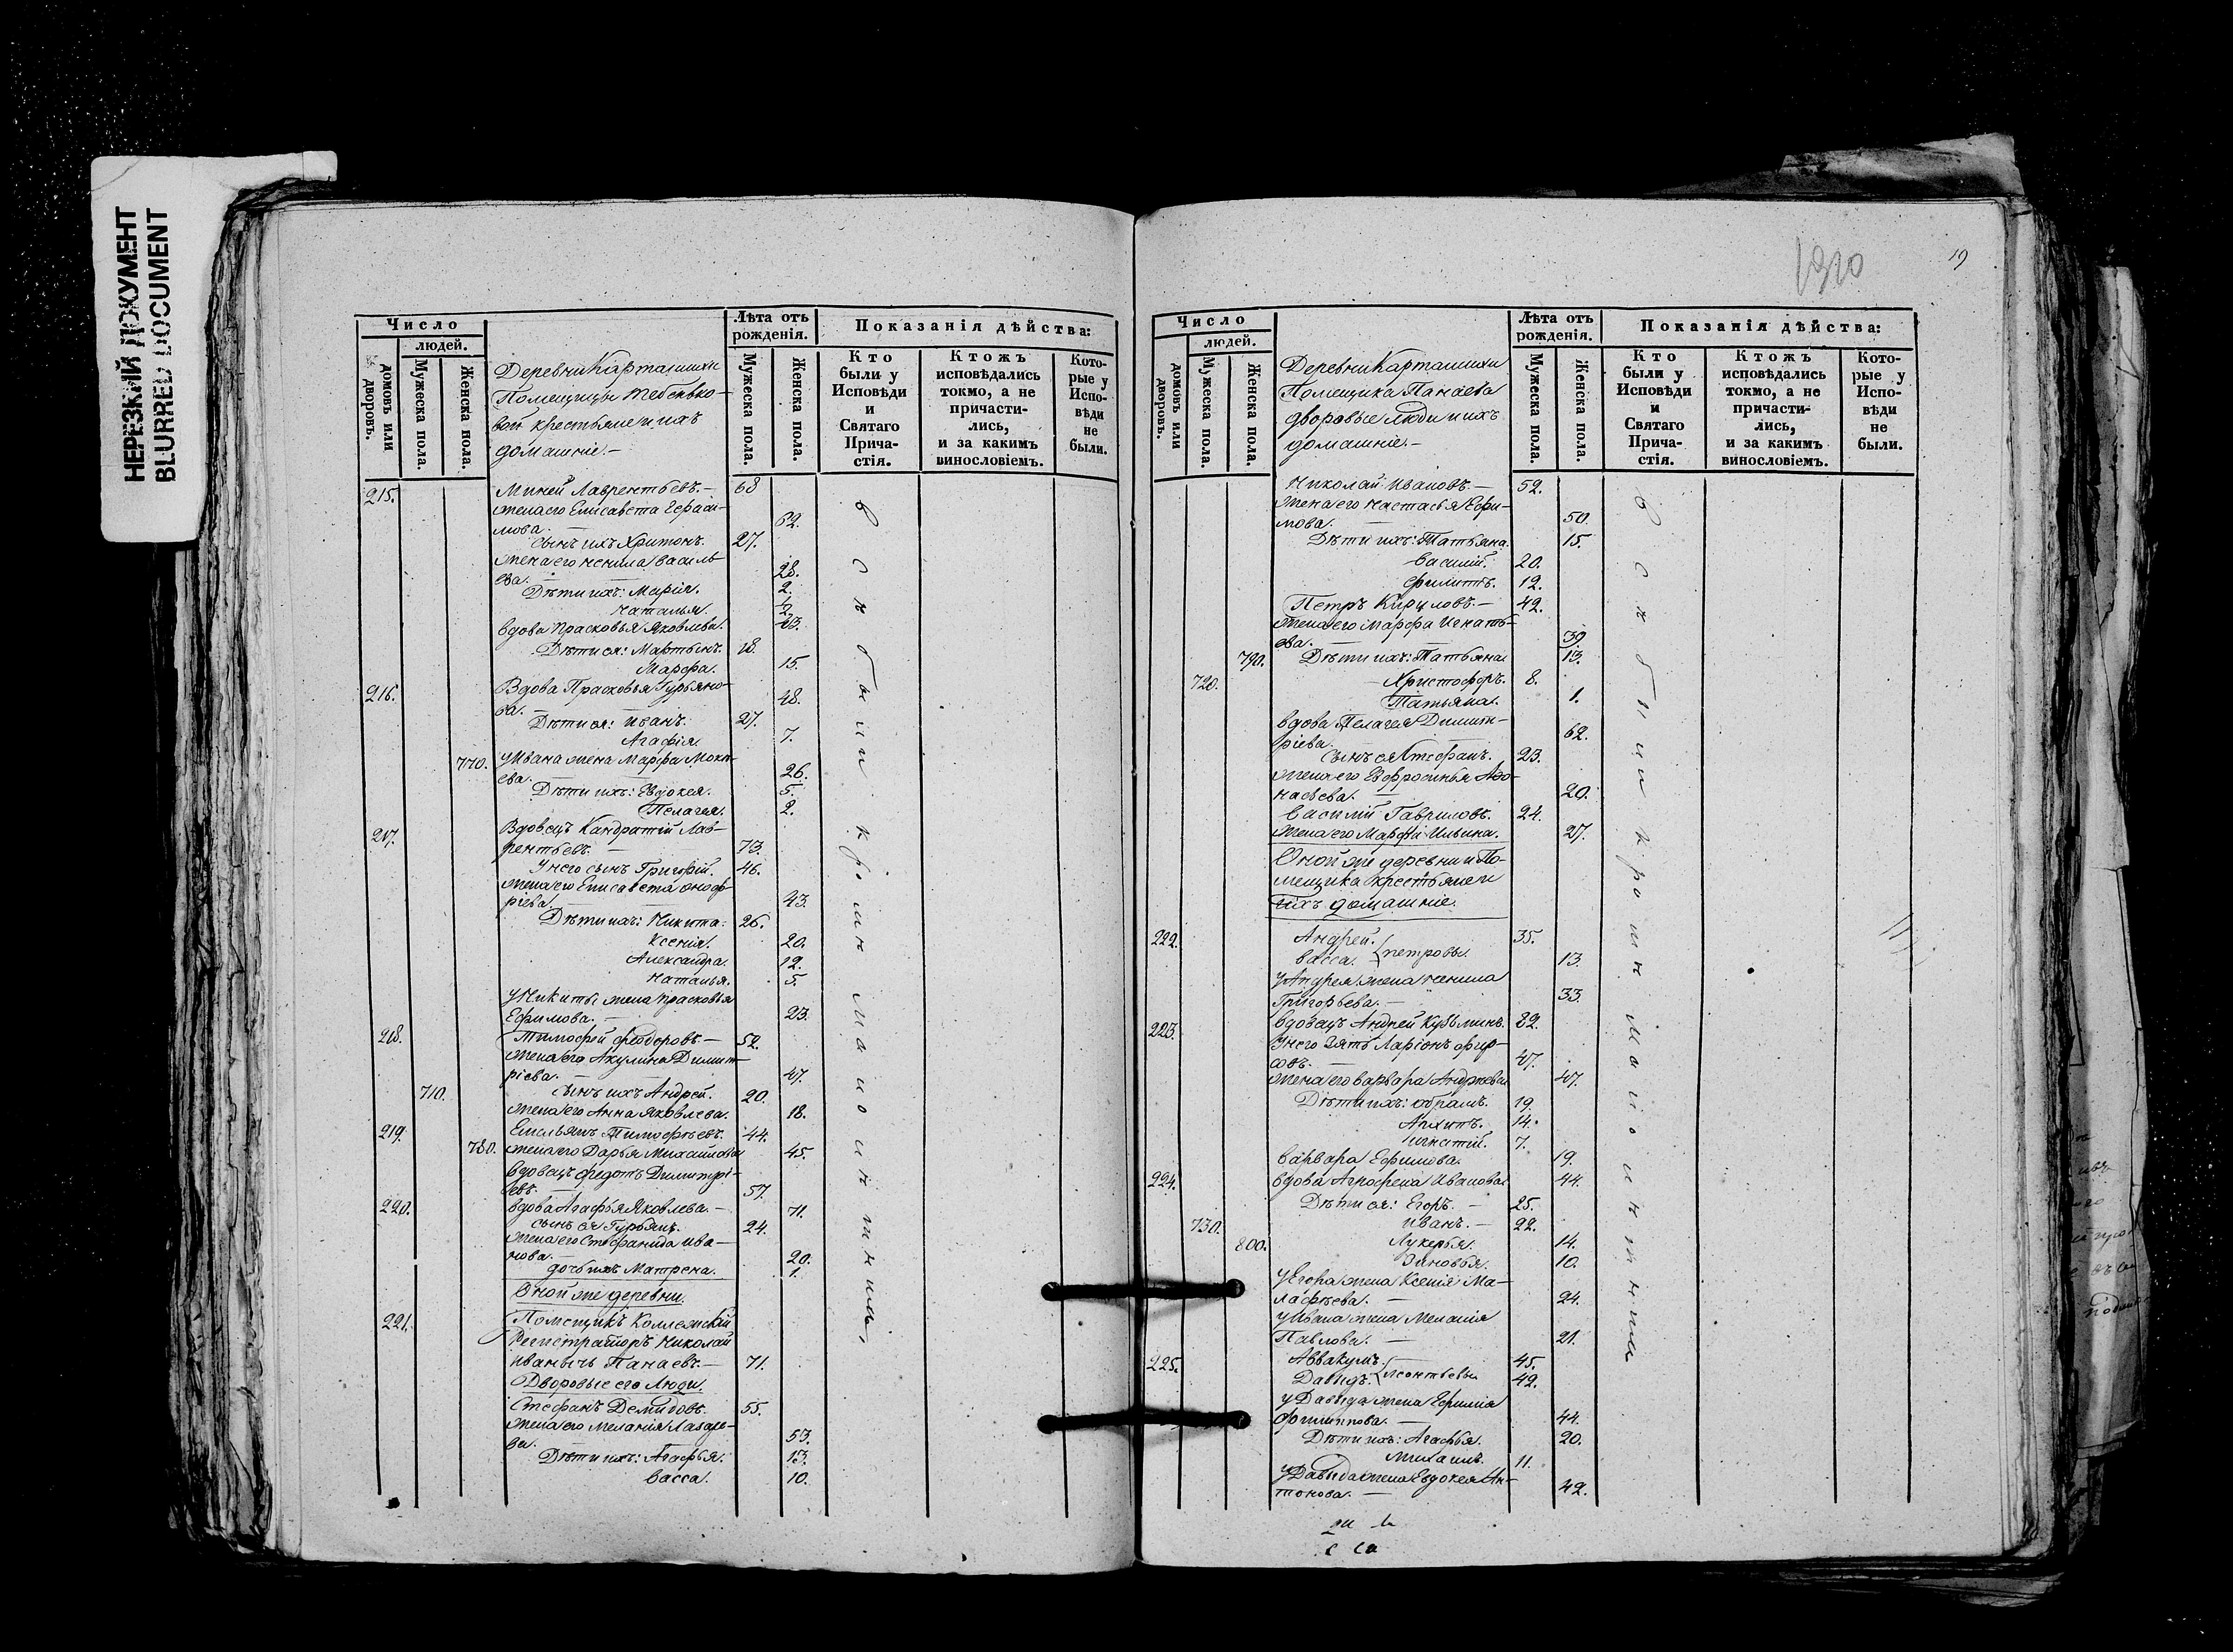 НЕРЕЗКИЙ ДОКУМЕНТ
BLURRED DOCUMENT
Число
людей.
домовъ или дворовъ.
Мужеска пола.
Женска пола.
Деревни Карташихи
Помещицы Тебенько-
вой крестьяне и ихъ
домашніе. –
Лѣта отъ рожденія.
Мужеска пола.
Женска пола.
Показанія дѣйства:
Кто были у Исповѣди и Святаго Прича-стія.
Ктожъ исповѣдались токмо, а не причасти-лись, и за какимъ винословіемъ.
Кото-рые у Испо-вѣди не были.
215. Миней Лаврентьевъ. – 68
жена его Елисавета Гераси-
мова. – 62.
сынъ ихъ Харитонъ. 27.
жена его Ненила Василь-
ева. – 28.
Дѣти ихъ: Марія. 2.
Наталья. ½.
вдова Прасковья Яковлева. 43.
Дѣти ея: Мартынъ. 18.
Марфа. 15.
216. Вдова Прасковья Гурьяно-
ва. – 48.
Дѣти ея: Иванъ. 27.
Агафія. 7.
770. У Ивана жена Марфа Моки-
ева. – 26.
Дѣти ихъ: Евдокея. 5.
Пелагея. 2.
217. Вдовецъ Кандратій Лав-
рентьевъ. – 73.
У него сынъ Григорій. 46.
жена его Елисавета Оноф-
ріева. – 43.
Дѣти ихъ: Никита. 26.
Ксенія. 20.
Александра. 12.
Наталья. 5.
У Никиты жена Прасковья
Ефимова. – 23.
218. Тимофей Феодоровъ. – 52.
жена его Акулина Димит-
ріева. – 47.
710. сынъ ихъ Андрей. 20.
жена его Анна Яковлева. 18.
219. Емельянъ Тимофѣевъ. 44.
780. жена его Дарья Михайлова 45.
вдовецъ Федотъ Димитрі-
евъ. – 57.
220. вдова Агафья Яковлева. – 71.
сынъ ея Гурьянъ. 24.
жена его Стефанида Ива-
нова. – 20.
дочь ихъ Матрена. 1.
Оной же деревни.
221. Помещикъ Коллежскій
Регистраторъ Николай
Иванычь Панаевъ. – 71.
Дворовые его Люди.
Стефанъ Демидовъ. 55.
жена его Меланія Лазаре-
ва. 53.
Дѣти ихъ: Агафья. 13.
Васса. 10.
1910
19
Число
людей.
домовъ или дворовъ.
Мужеска пола.
Женска пола.
Деревни Карташихи
Помещика Панаева
дворовые люди и ихъ
домашніе. –
Лѣта отъ рожденія.
Мужеска пола.
Женска пола.
Показанія дѣйства:
Кто были у Исповѣди и Святаго Прича-стія.
Ктожъ исповѣдались токмо, а не причасти-лись, и за какимъ винословіемъ.
Кото-рые у Испо-вѣди не были.
Николай Ивановъ. – 52.
жена его Настасья Ефи-
мова. – 50.
Дѣти ихъ: Татьяна. 15.
Василій. 20.
Филипъ. 12.
Петръ Кириловъ. – 42.
жена его Марфа Игнать-
ева. – 39
790. Дѣти ихъ: Татьяна 13.
720. Христофоръ. 8.
Татьяна. 1.
вдова Пелагея Димит-
ріева. 62.
сынъ ея Стефанъ. 23.
жена его Евфросинья Афо-
насьева. – 20.
Василій Гавриловъ. 24.
жена его Марфа Ильина. 27.
Оной же деревни и По-
мещика крестьяне и
ихъ домашніе.
222. Андрей. 35.
Васса. Петровы. 13.
У Андрея жена Ненила
Григорьева. – 33.
223. вдовецъ Андрей Кузьминъ. 82.
У него зять Ларіонъ Фир-
совъ. – 47.
жена его Варвара Андреева 47.
Дѣти ихъ: Абрамъ. 19.
Архипъ. 14.
Игнатій. 7.
Варвара Ефимова. 19.
224. вдова Агрофена Иванова 44.
Дѣти ея: Егоръ. – 25.
730. Иванъ. – 22.
800. Лукерья. 14.
Зиновья. 10.
У Егора жена Ксенія Ма-
лафѣева. – 24.
У Ивана жена Меланія
Павлова. – 21.
225. Аввакумъ. 45.
Давыдъ. Леонтьевы 42.
У Давыда жена Ефимія
Филиппова. – 44.
Дѣти ихъ: Агафья. 20.
Михаилъ. 11.
У Давыда жена Евдокея Ан-
тонова. – 42.